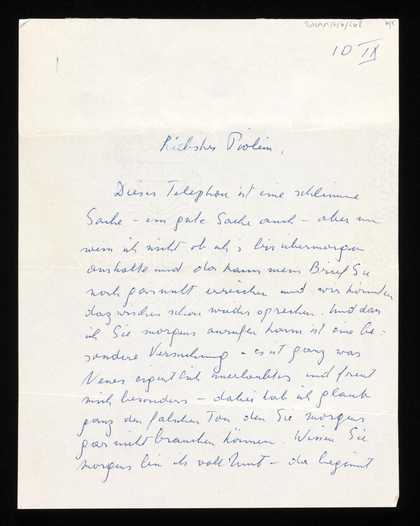 10 IX
Liebstes Violein,
Dieses Telephon ist eine schlimme
Sache – eine gute Sache auch – aber nun
weiss ich nicht ob ich's bis übermorgen
aushalte und da kann mein Brief Sie
noch gar nicht erreichen und wir könnten
dazwischen schon wieder sprechen. Und dass
ich Sie morgens anrufen kann ist eine be-
sondere Versuchung – es ist ganz was
Neues eigentlich unerlaubtes und freut
mich besonders – dabei hab ich glaub
ganz den falschen Ton den Sie morgens
gar nicht brauchen können. Wissen Sie
morgens bin ich voll Mut – da beginnt